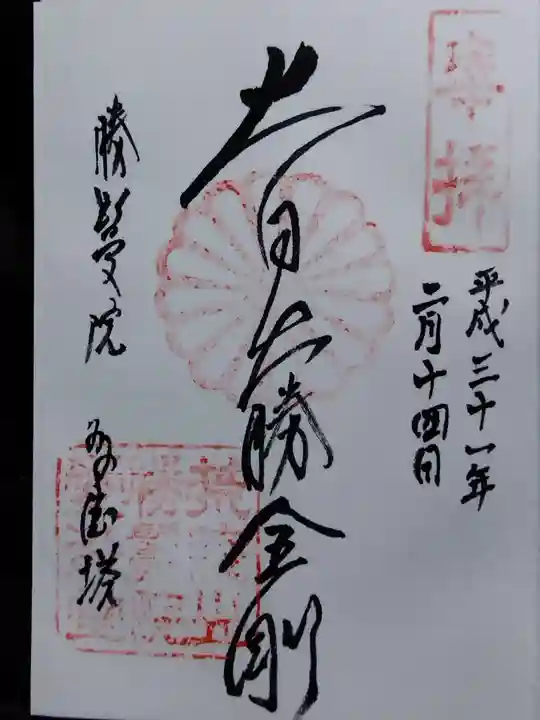 奉拝
平成三十一年
二月十四日
大日大勝金剛
勝鬘院 多宝塔